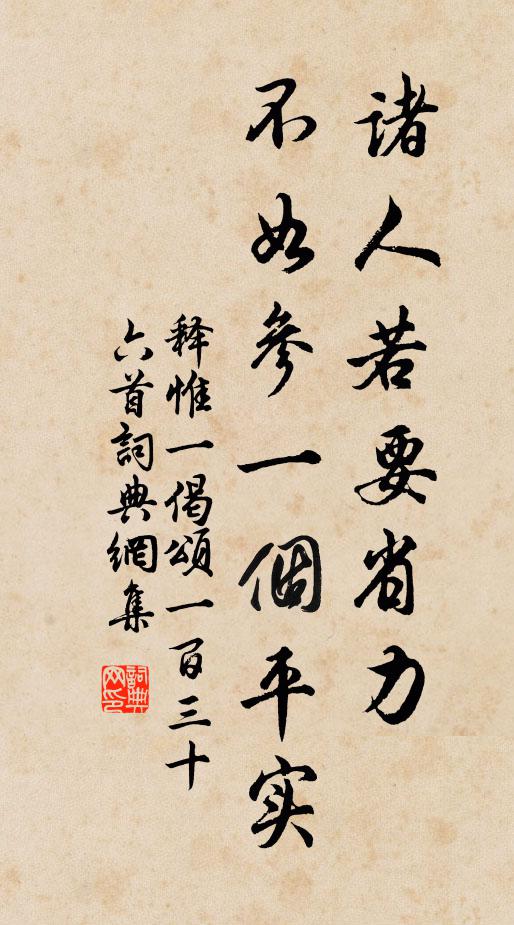 諸人若要省力
不如參一個平实
释惟一偈頌一百三十
六首詞典網集
詞典网印